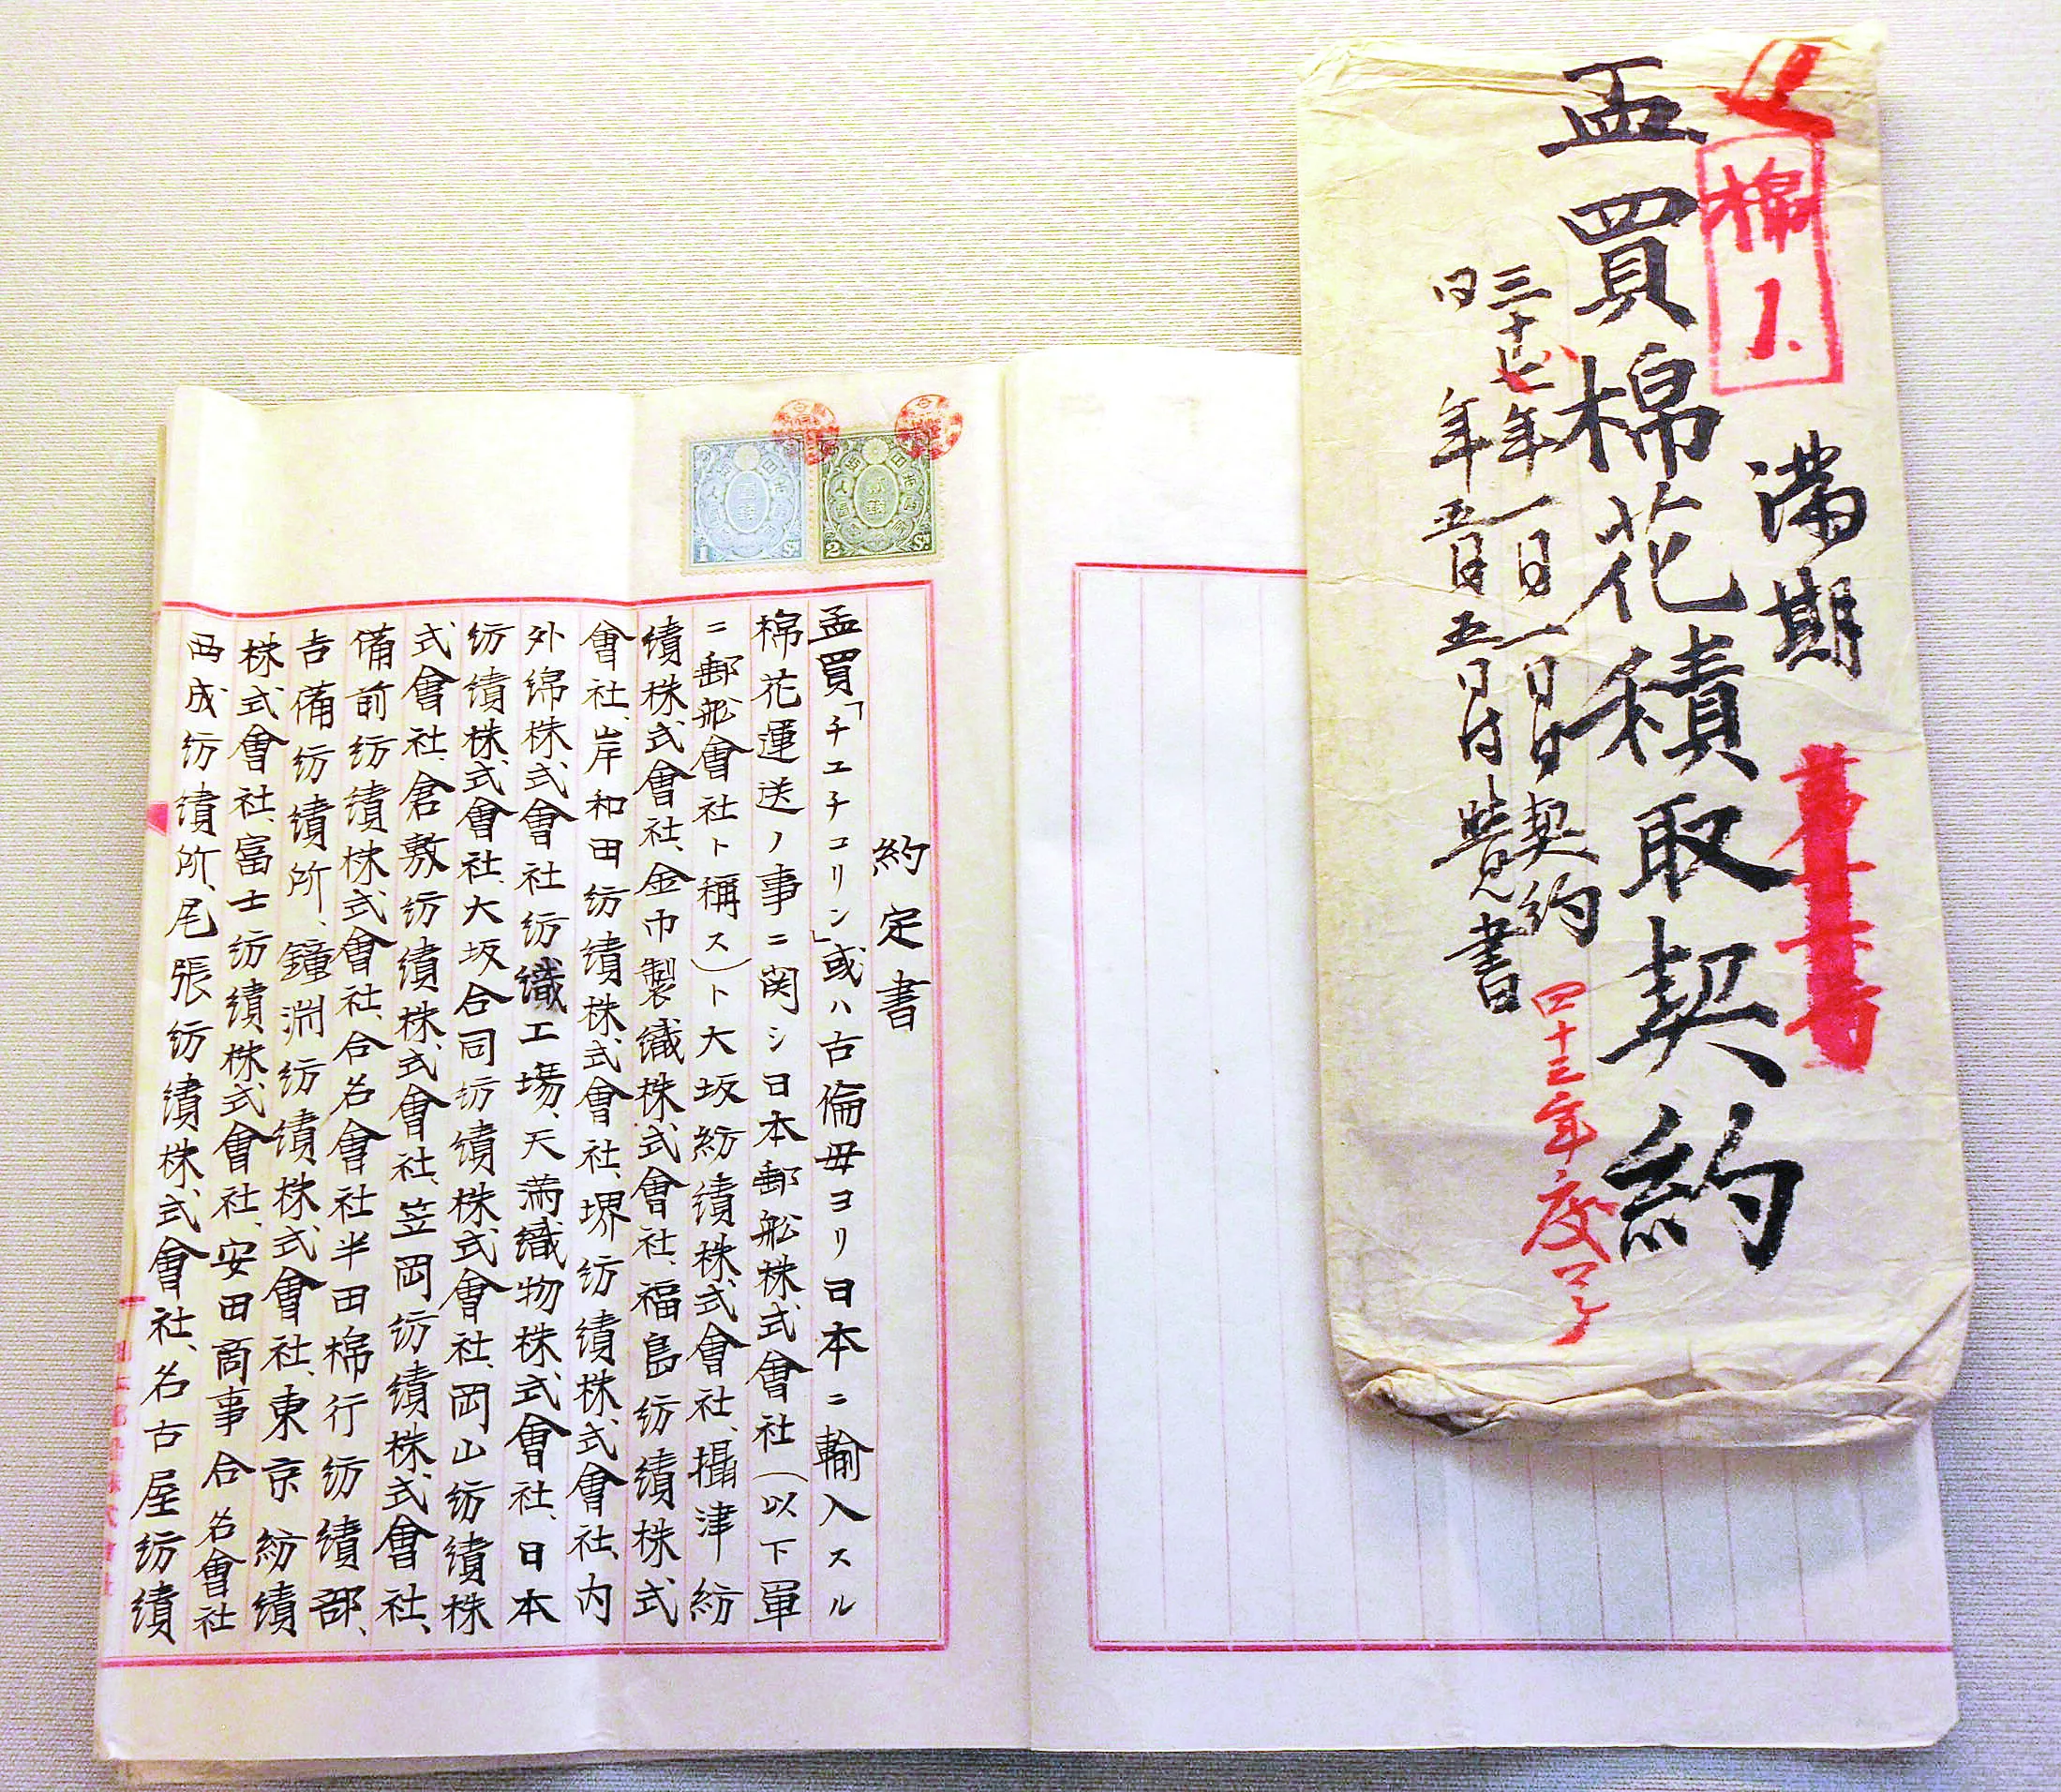 棉
1.
満期
孟買棉花積取契約
三十七年一月一日付契約
四十三年度了
同 年五月五日付覚書
約定書
孟買「チユチコリン」或ハ古倫母ヨリ日本ニ輸入スル
棉花運送ノ事ニ関シ日本郵舩株式會社(以下単
ニ郵舩會社ト稱ス)ト大坂紡績株式會社、攝津紡
績株式會社、金巾製織株式會社、福島紡績株式
會社、岸和田紡績株式會社、堺紡績株式會社、内
外綿株式會社紡織工場、天満織物株式會社、日本
紡績株式會社、大坂合同紡績株式會社、岡山紡績株
式會社、倉敷紡績株式會社、笠岡紡績株式會社、
備前紡績株式會社、合名會社半田棉行紡績部、
吉備紡績所、鐘淵紡績株式會社、東京紡績
株式會社、富士紡績株式會社、安田商事合名會社
西成紡績所、尾張紡績株式會社、名古屋紡績
1 Sn
2 Sn
貳錢